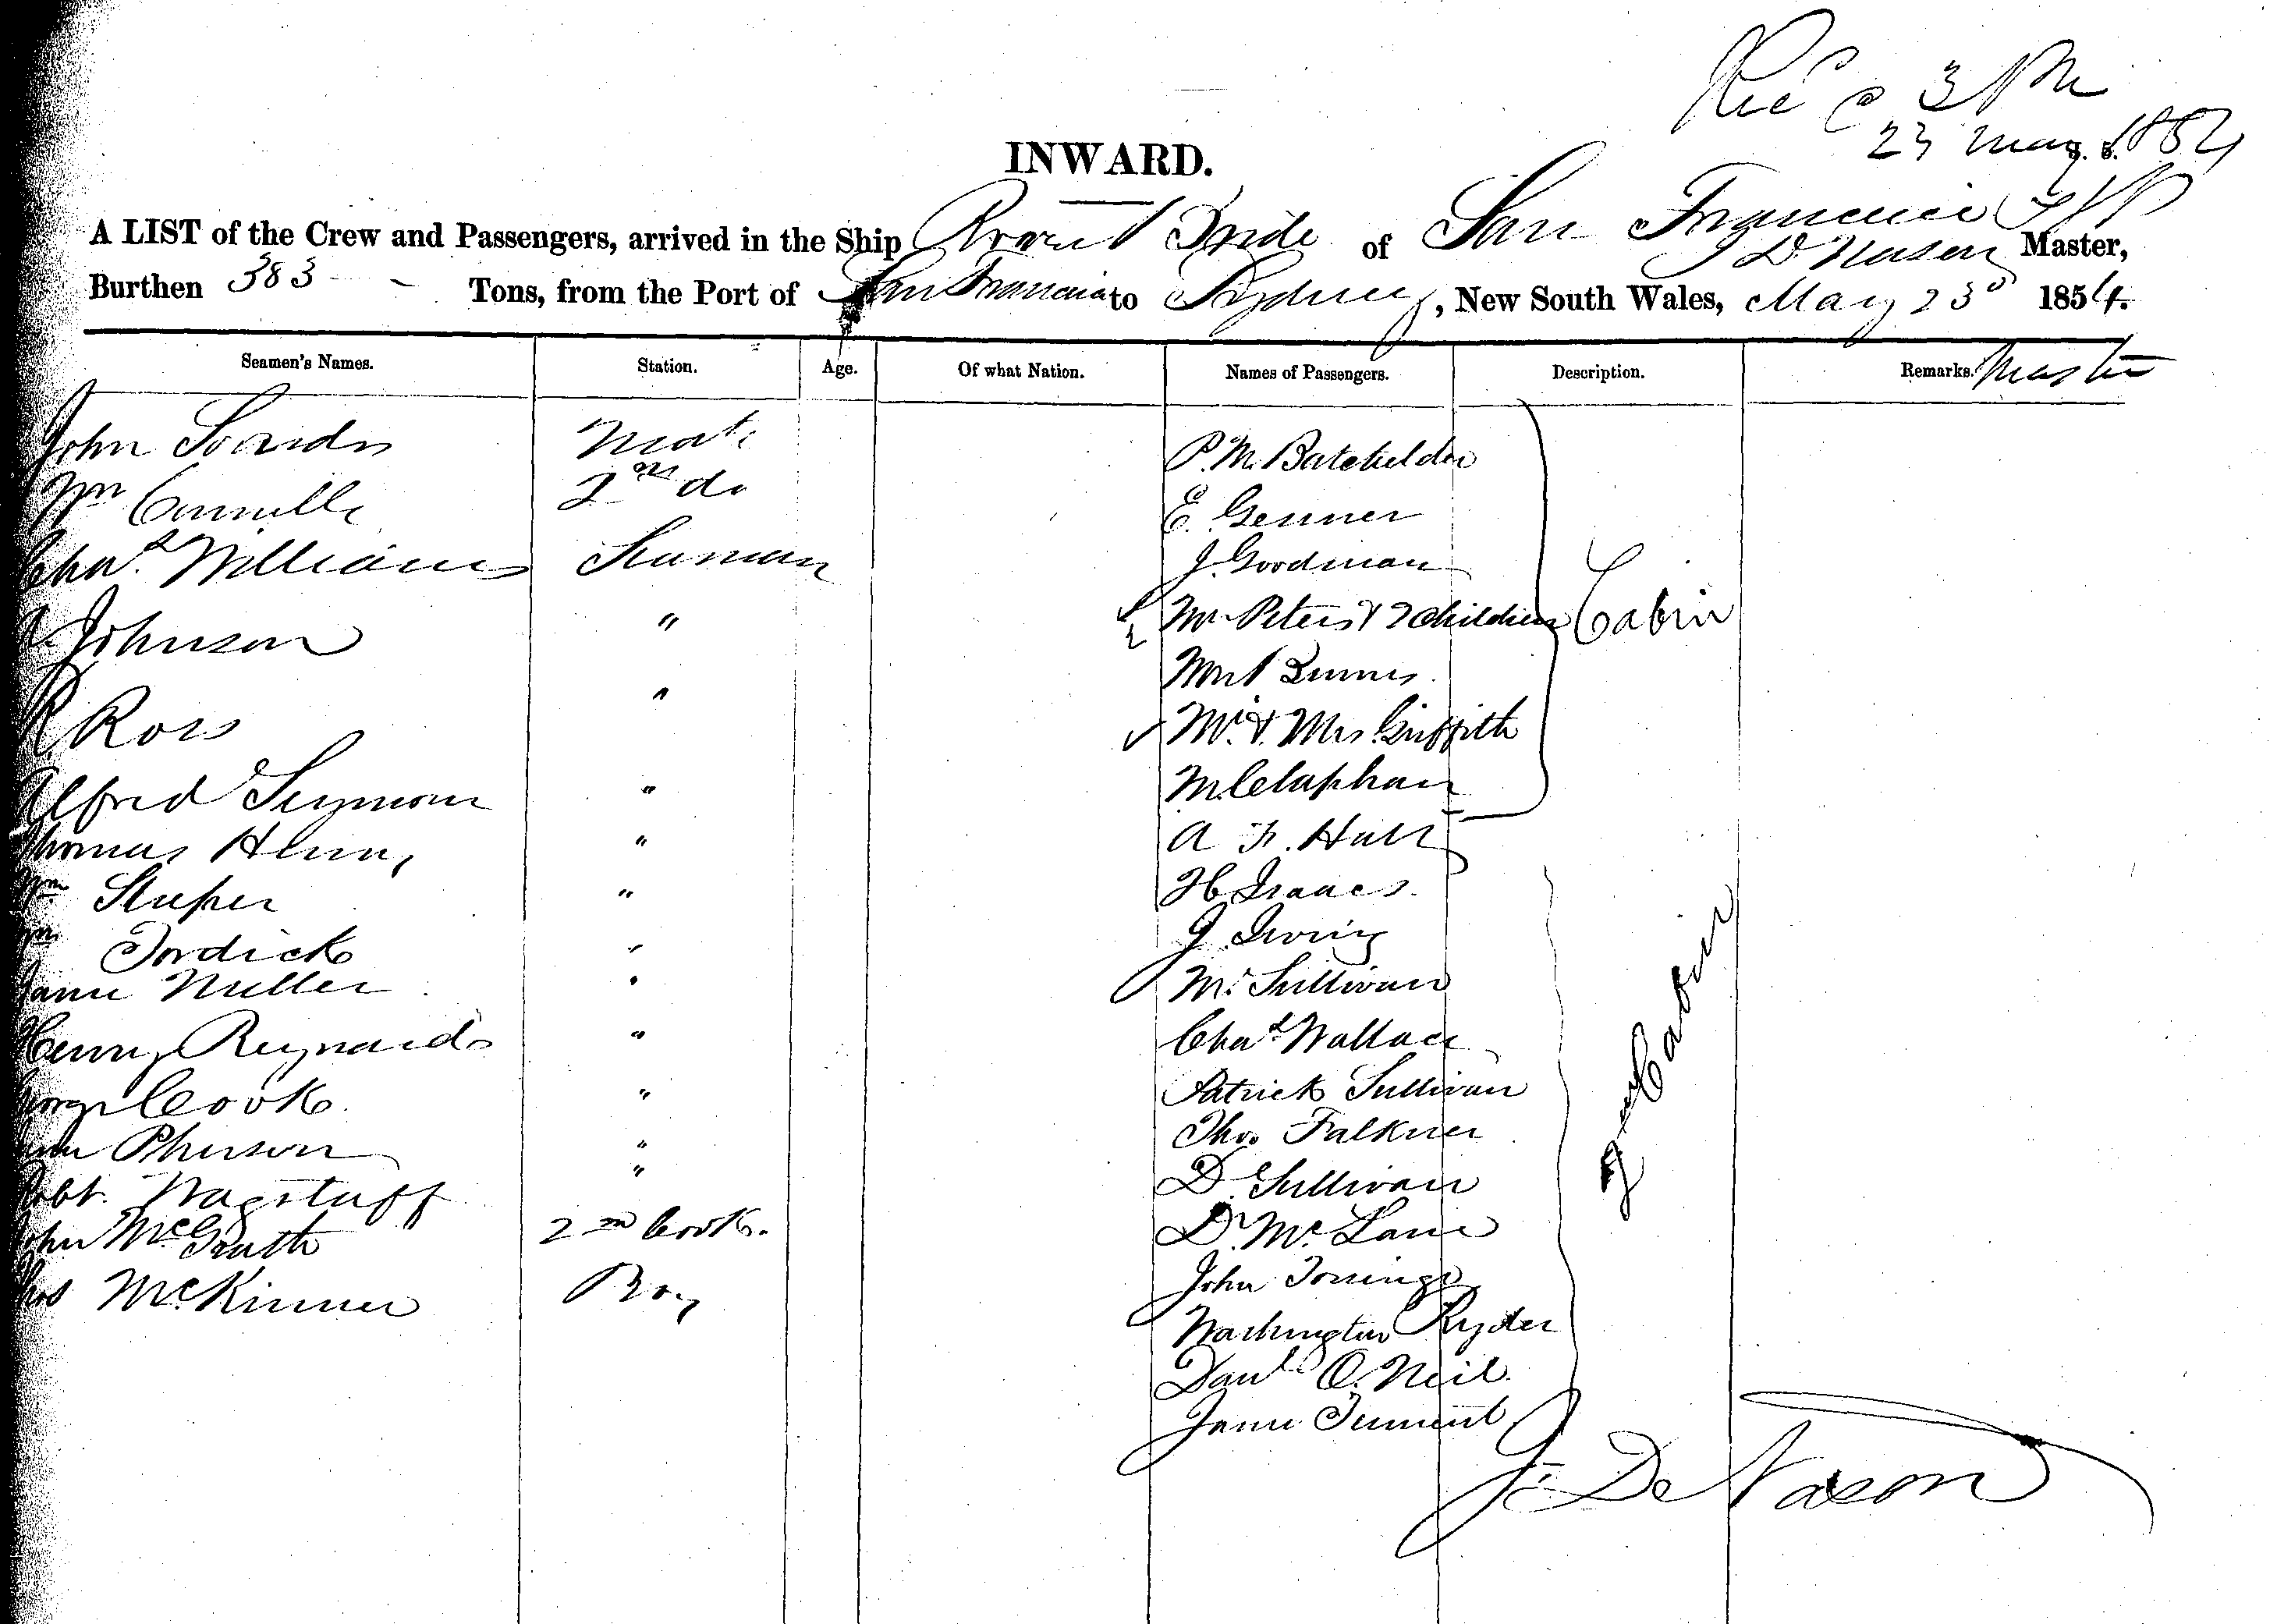 Rec'd @ 3 PM
23 May 1854
INWARD.
A LIST of the Crew and Passengers, arrived in the Ship Pride of San Francisco
J D Nason Master,
Burthen 383 Tons, from the Port of San Francisco to Sydney, New South Wales, May 23d 1854.
Seamen's Names. Station. Age. Of what Nation. Names of Passengers. Description. Remarks. Master
John Mate P. M. Batchelder
Wm 2nd do E. Genner
Chas. Williams Seaman J. Goodman
Johnson " Mrs Peters & 2 Children Cabin
R Ross "
Mr. & Mrs. Griffith
Alfred Seymour " M. Clapham
Thomas Henry " A F. Hall
Wm " H Isaacs.
Wm Tordick " J. Irving
James Miller " Mr. Sullivan
Henry Reynards " Chas Wallace
George Cook. " Patrick Sullivan
Pherson " Thos Falkner
Robt. Wagstaff " D. Sullivan
John McGrath 2nd Cook. Dr. Mc Lane
Thos McKinner Boy John
Washington Ryder
Danl O. Neil.
James Tennent
2nd Cabin
J. De Nason